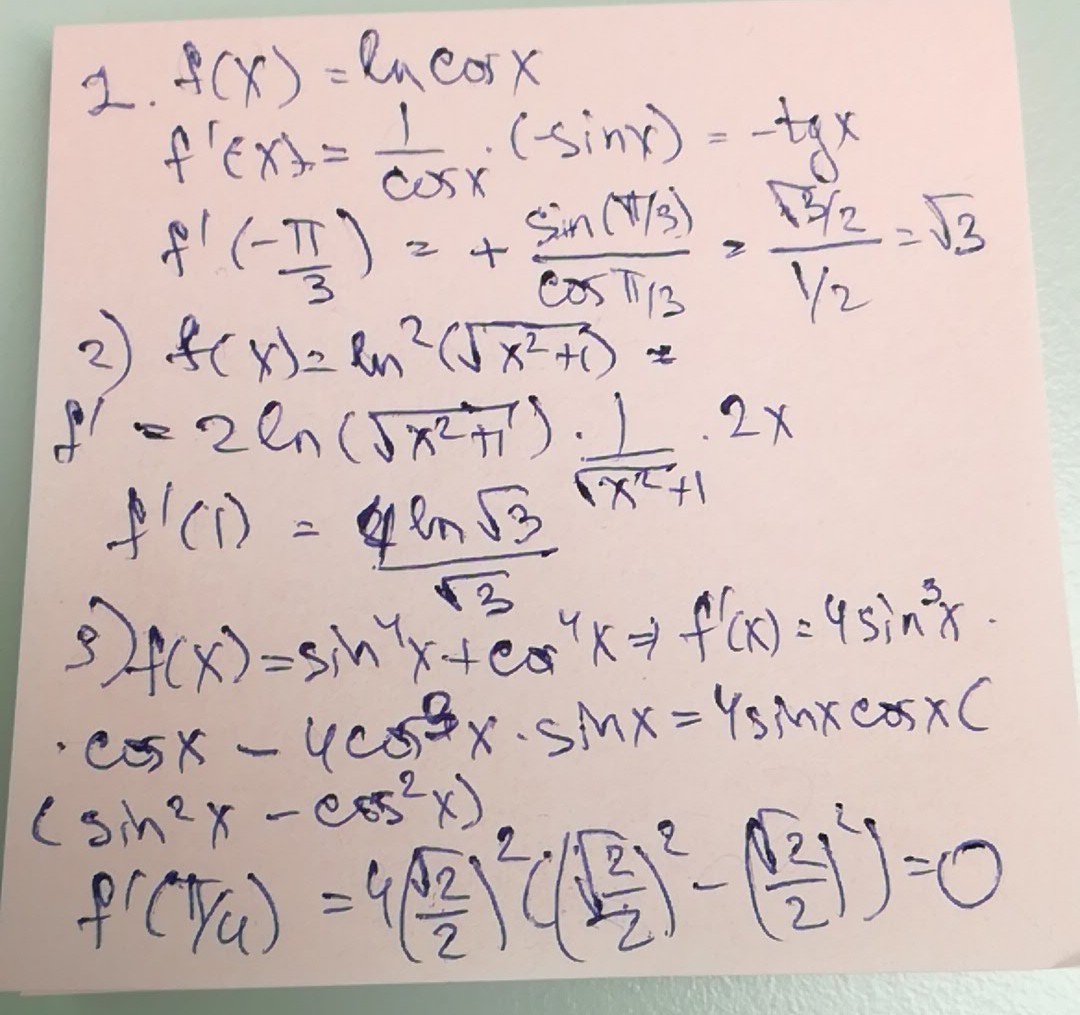 1. f(x) = ln cos x
f'(x) = 1/cos x · (-sin x) = -tg x
f'(-π/3) = + sin(π/3)/cos π/3 = (√3/2)/(1/2) = √3
2) f(x) = ln²(√(x²+1)) =
f' = 2 ln(√(x²+1)) · 1/√(x²+1) · 2x
f'(1) = 4 ln √3 / √3
3) f(x) = sin⁴x + cos⁴x ⇒ f'(x) = 4 sin³x ·
· cos x - 4 cos³x · sin x = 4 sin x cos x (
( sin²x - cos²x)
f'(π/4) = 4(√2/2)²((√2/2)² - (√2/2)²) = 0